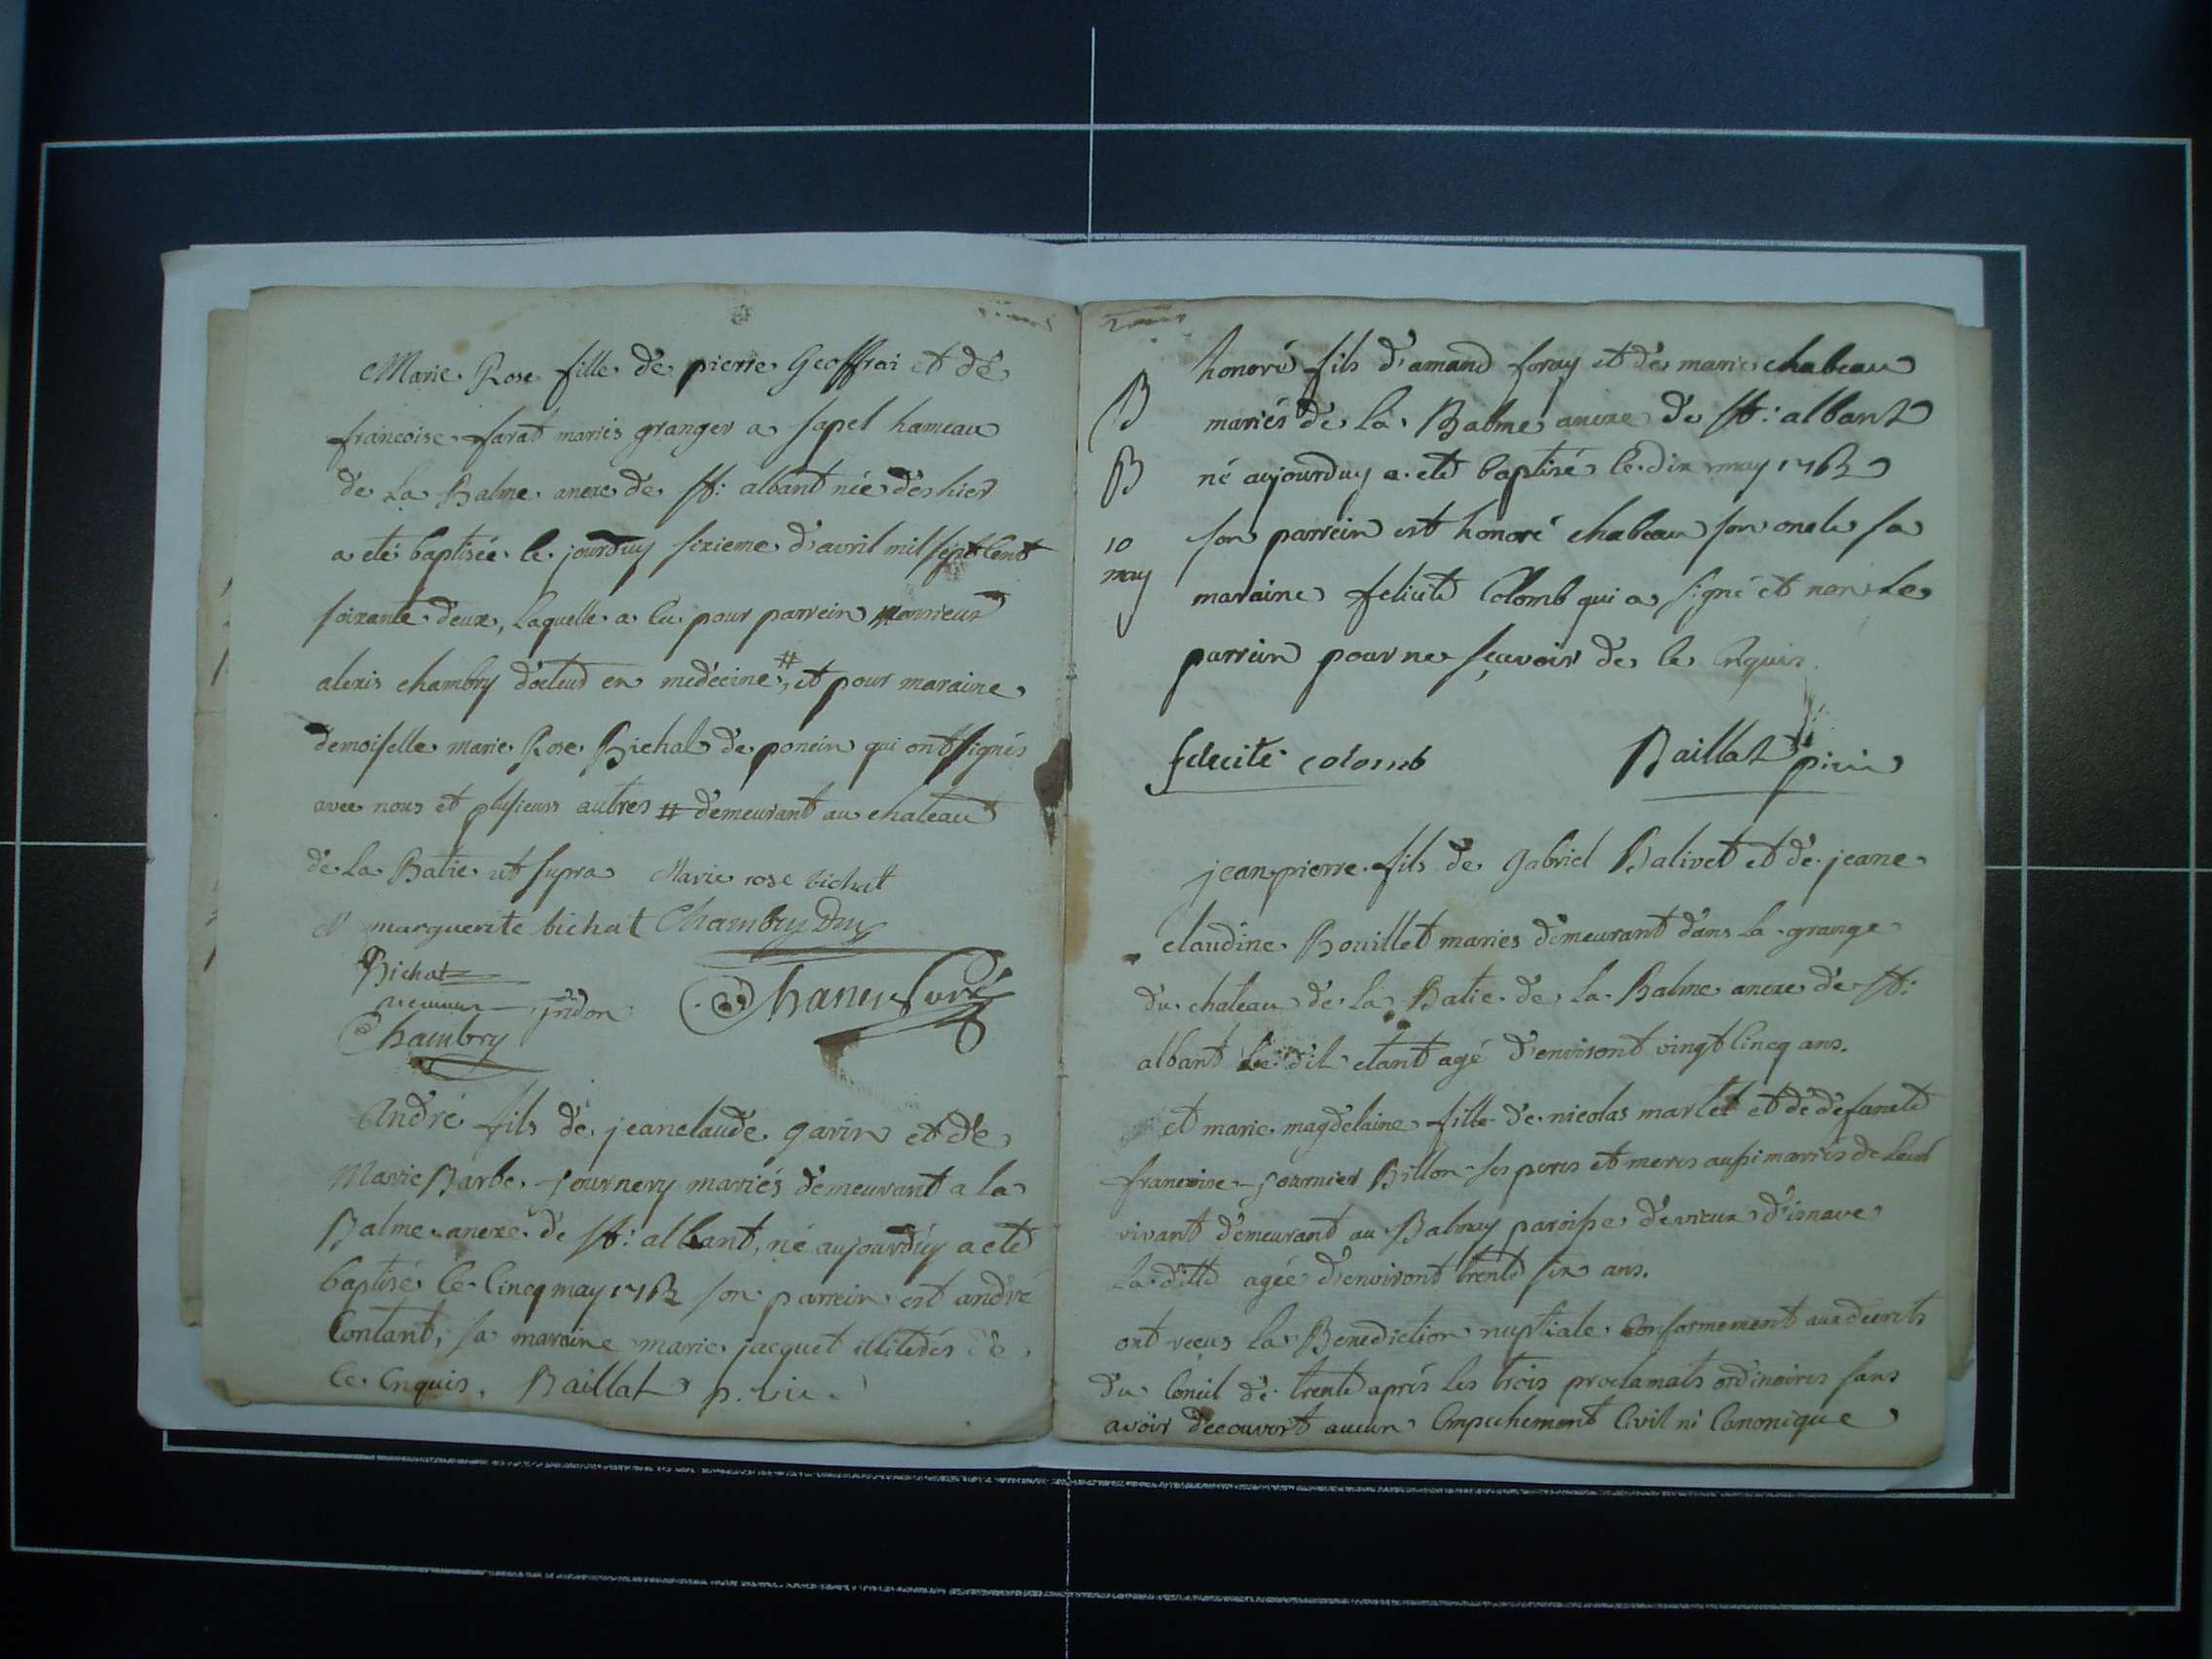 Marie Rose fille de pierre Geoffrai et de
francoise farat mariés granger a sapel hameau
de La Balme anexe de St: albant née des hier
a eté baptisée le jourduy sixieme d'avril mil sept Cent
soixante deux, Laquelle a Eu pour parrein monsieur
alexis chambry docteur en medecine #, et pour maraine
demoiselle marie Rose Bichat de poncin qui ont signés
avec nous et plusieurs autres # demeurant au chateau
de La Batie ut supra Marie rose bichat
M marguerite bichat Chambry Dm
Bichat
fridon
Chambry
André fils de jeanclaude garin et de
Marie Barbe journery mariés demeurant a la
Balme anexe de St: albant, né aujourduy a eté
baptisé le Cincq may 1762 son parrein est andré
Contant, sa maraine marie jacquet illiterés de
ce Enquis. Baillat p. vic.
honoré fils d'amand foray et de marie chabeau
B mariés de La Balme anexe de St: albant
B né aujourduy a eté baptisé le dix may 1762
10 son parrein est honoré chabeau son oncle sa
may maraine felicité Colomb qui a signé et non Le
parrein pour ne sçavoir de ce Enquis.
felecite colomb Baillat
jean pierre fils de gabriel Balivet et de jeane
claudine Bouillet mariés demeurant dans la grange
du chateau de La Batie de La Balme anexe de St:
albant Le dit etant agé d'environt vingt Cincq ans.
et marie magdelaine fille de nicolas marlet et de defuncte
francoise fournier Billon ses peres et meres aussi mariés de Leur
vivant demeurant au Balmay paroisse de vieux d'isnave
La ditte agée d'environt trente six ans.
ont reçus La Benediction nuptiale Conformement aux decrets
du Concil de trente aprés Les trois proclamats ordinaires sans
avoir decouvert aucun Empechement Civil ni Canonique